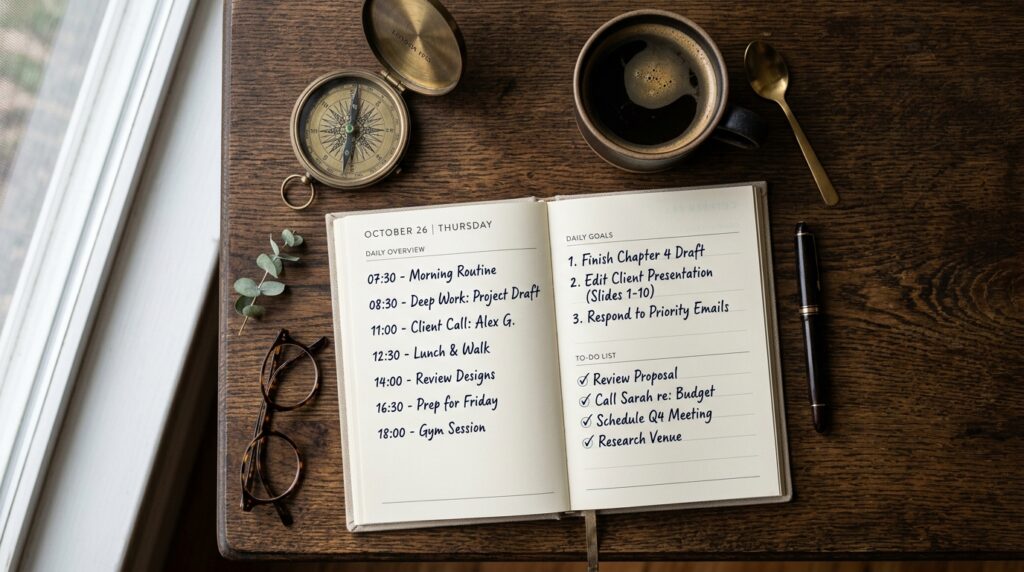 OCTOBER 26 | THURSDAY
DAILY OVERVIEW
07:30 - Morning Routine
08:30 - Deep Work: Project Draft
11:00 - Client Call: Alex G.
12:30 - Lunch & Walk
14:00 - Review Designs
16:30 - Prep for Friday
18:00 - Gym Session
DAILY GOALS
1. Finish Chapter 4 Draft
2. Edit Client Presentation
(Slides 1-10)
3. Respond to Priority Emails
TO-DO LIST
✓ Review Proposal
✓ Call Sarah re: Budget
✓ Schedule Q4 Meeting
✓ Research Venue